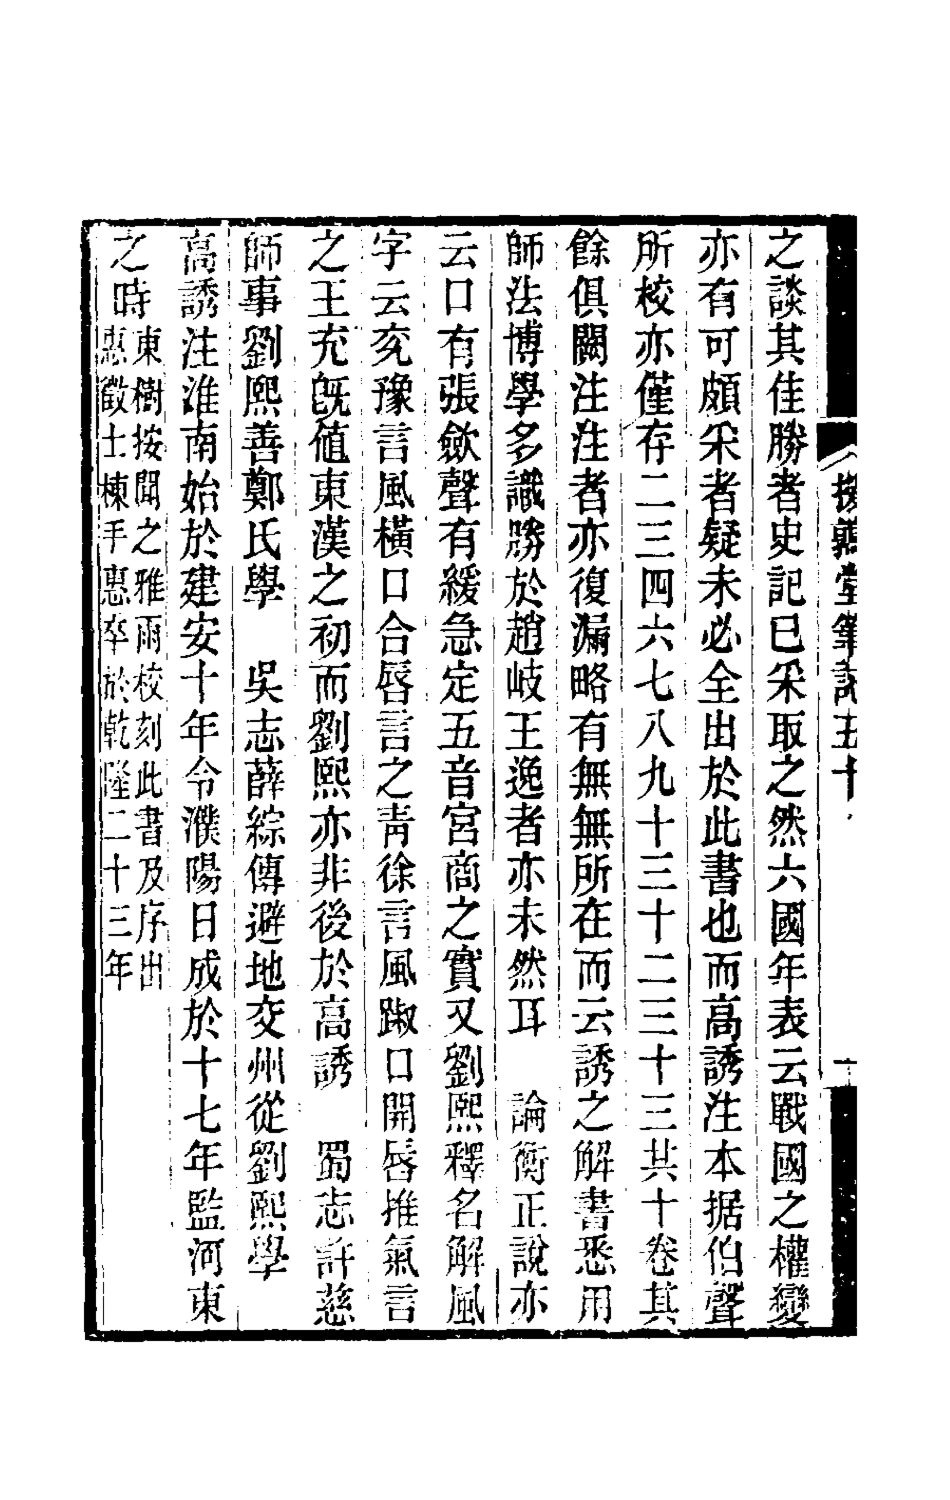 援鶉堂筆記五十
一
之談其佳勝者史記已采取之然六國年表云戰國之權變
亦有可頗采者疑未必全出於此書也而高誘注本据伯聲
所校亦僅存二三四六七八九十三十二三十三共十卷其
餘俱闕注注者亦復漏略有無無所在而云誘之解書悉用
師法博學多識勝於趙岐王逸者亦未然耳　論衡正說亦
云口有張歛聲有緩急定五音宮商之實又劉熙釋名解風
字云兖豫言風橫口合唇言之青徐言風踧口開唇推氣言
之王充旣値東漢之初而劉熙亦非後於高誘　蜀志許慈
師事劉熙善鄭氏學　吳志薛綜傳避地交州從劉熙學
高誘注淮南始於建安十年令濮陽日成於十七年監河東
之時東樹按聞之雅雨校刻此書及序出
惠徵士棟手惠卒於乾隆二十三年